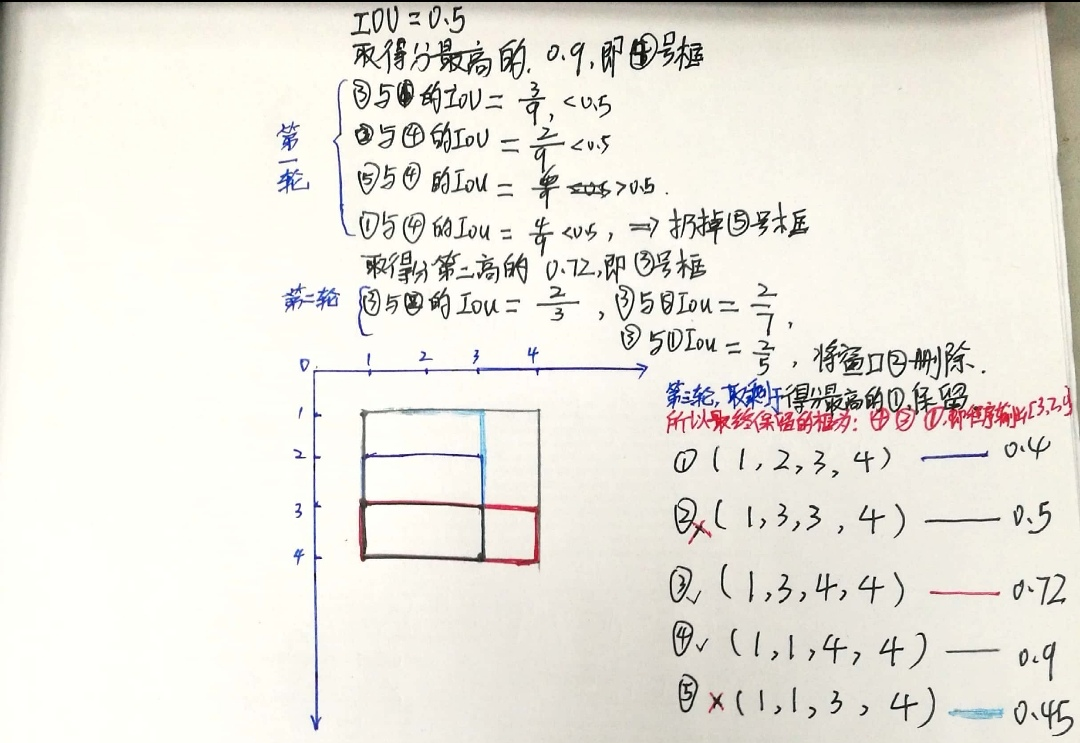 IOU = 0.5
取得分最高的. 0.9, 即④号框
③与④的IOU = 3/9, <0.5
②与④的IOU = 2/9 <0.5
第一轮
⑤与④ 的IOU = >0.5.
①与④的IOU = 4/9 <0.5, => 扔掉⑤号框
取得分第二高的 0.72, 即③号框
第二轮
③与②的IOU = 2/3 , ③与 IOU = 2/7,
③与①IOU = 2/5 , 将窗口②删除.
第三轮, 取剩于得分最高的①,保留
所以最终保留的框为: ④ ③ ①, 即程序输出[3,2,
0 1 2 3 4
1
2
3
4
① (1,2,3,4) 0.4
② × (1,3,3,4) 0.5
③ ✓ (1,3,4,4) 0.72
④ ✓ (1,1,4,4) 0.9
⑤ × (1,1,3,4) 0.45